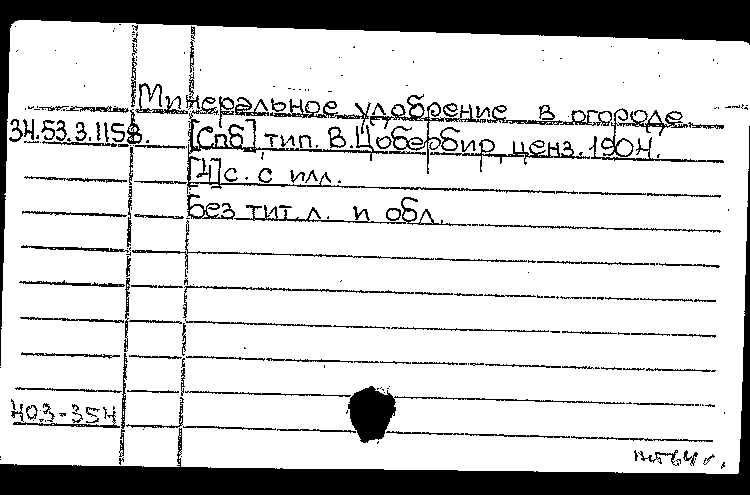 Минеральное удобрение в огороде.
34.53.3.1158. [Спб] тип. В.Цобербир, ценз. 1904.
[4] с. с илл.
Без тит. л. и обл.
403-354